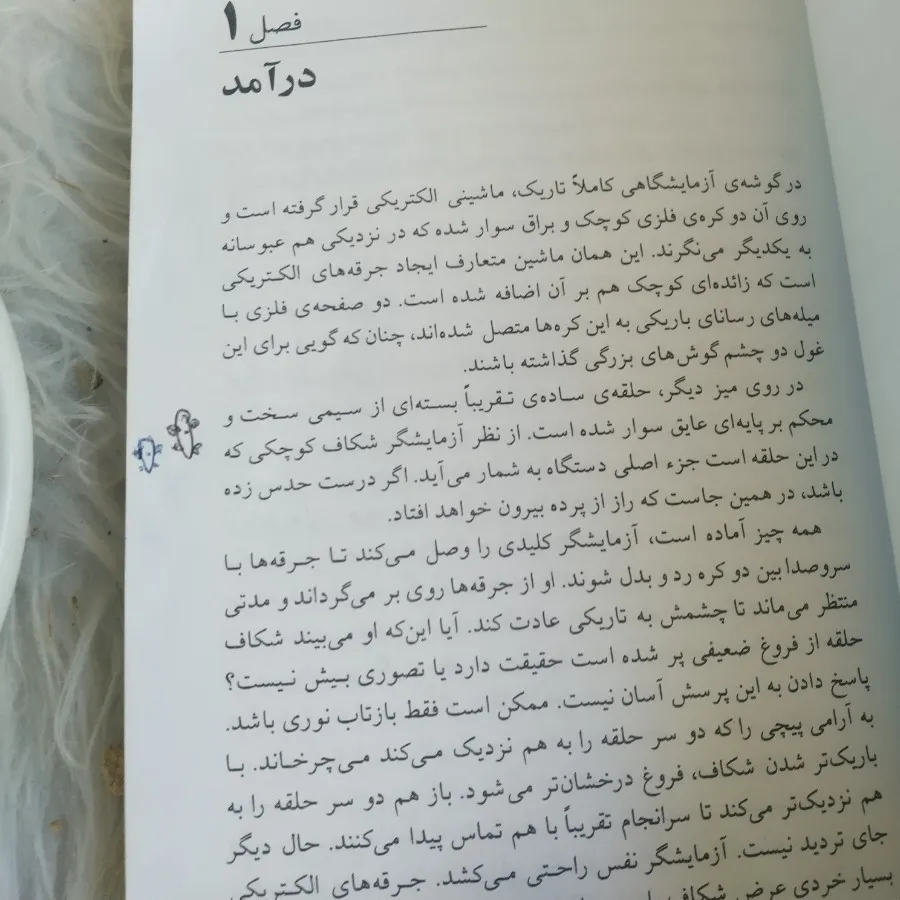 فصل ۱
درآمد
در گوشه‌ی آزمایشگاهی کاملاً تاریک، ماشینی الکتریکی قرار گرفته است و
روی آن دو کره‌ی فلزی کوچک و براق سوار شده که در نزدیکی هم عبوسانه
به یکدیگر می‌نگرند. این همان ماشین متعارف ایجاد جرقه‌های الکتریکی
است که زائده‌ای کوچک هم بر آن اضافه شده است. دو صفحه‌ی فلزی با
میله‌های رسانای باریکی به این کره‌ها متصل شده‌اند، چنان که گویی برای این
غول دو چشم گوش‌های بزرگی گذاشته باشند.
در روی میز دیگر، حلقه‌ی ساده‌ی تقریباً بسته‌ای از سیمی سخت و
محکم بر پایه‌ای عایق سوار شده است. از نظر آزمایشگر شکاف کوچکی که
در این حلقه است جزء اصلی دستگاه به شمار می‌آید. اگر درست حدس زده
باشد، در همین جاست که راز از پرده بیرون خواهد افتاد.
همه چیز آماده است، آزمایشگر کلیدی را وصل می‌کند تا جرقه‌ها با
سروصدا بین دو کره رد و بدل شوند. او از جرقه‌ها روی بر می‌گرداند و مدتی
منتظر می‌ماند تا چشمش به تاریکی عادت کند. آیا این‌که او می‌بیند شکاف
حلقه از فروغ ضعیفی پر شده است حقیقت دارد یا تصوری بیش نیست؟
پاسخ دادن به این پرسش آسان نیست. ممکن است فقط بازتاب نوری باشد.
به آرامی پیچی را که دو سر حلقه را به هم نزدیک می‌کند می‌چرخاند. با
باریک‌تر شدن شکاف، فروغ درخشان‌تر می‌شود. باز هم دو سر حلقه را به
هم نزدیک‌تر می‌کند تا سرانجام تقریباً با هم تماس پیدا می‌کنند. حال دیگر
جای تردید نیست. آزمایشگر نفس راحتی می‌کشد. جرقه‌های الکتریکی
بسیار خردی عرض شکاف